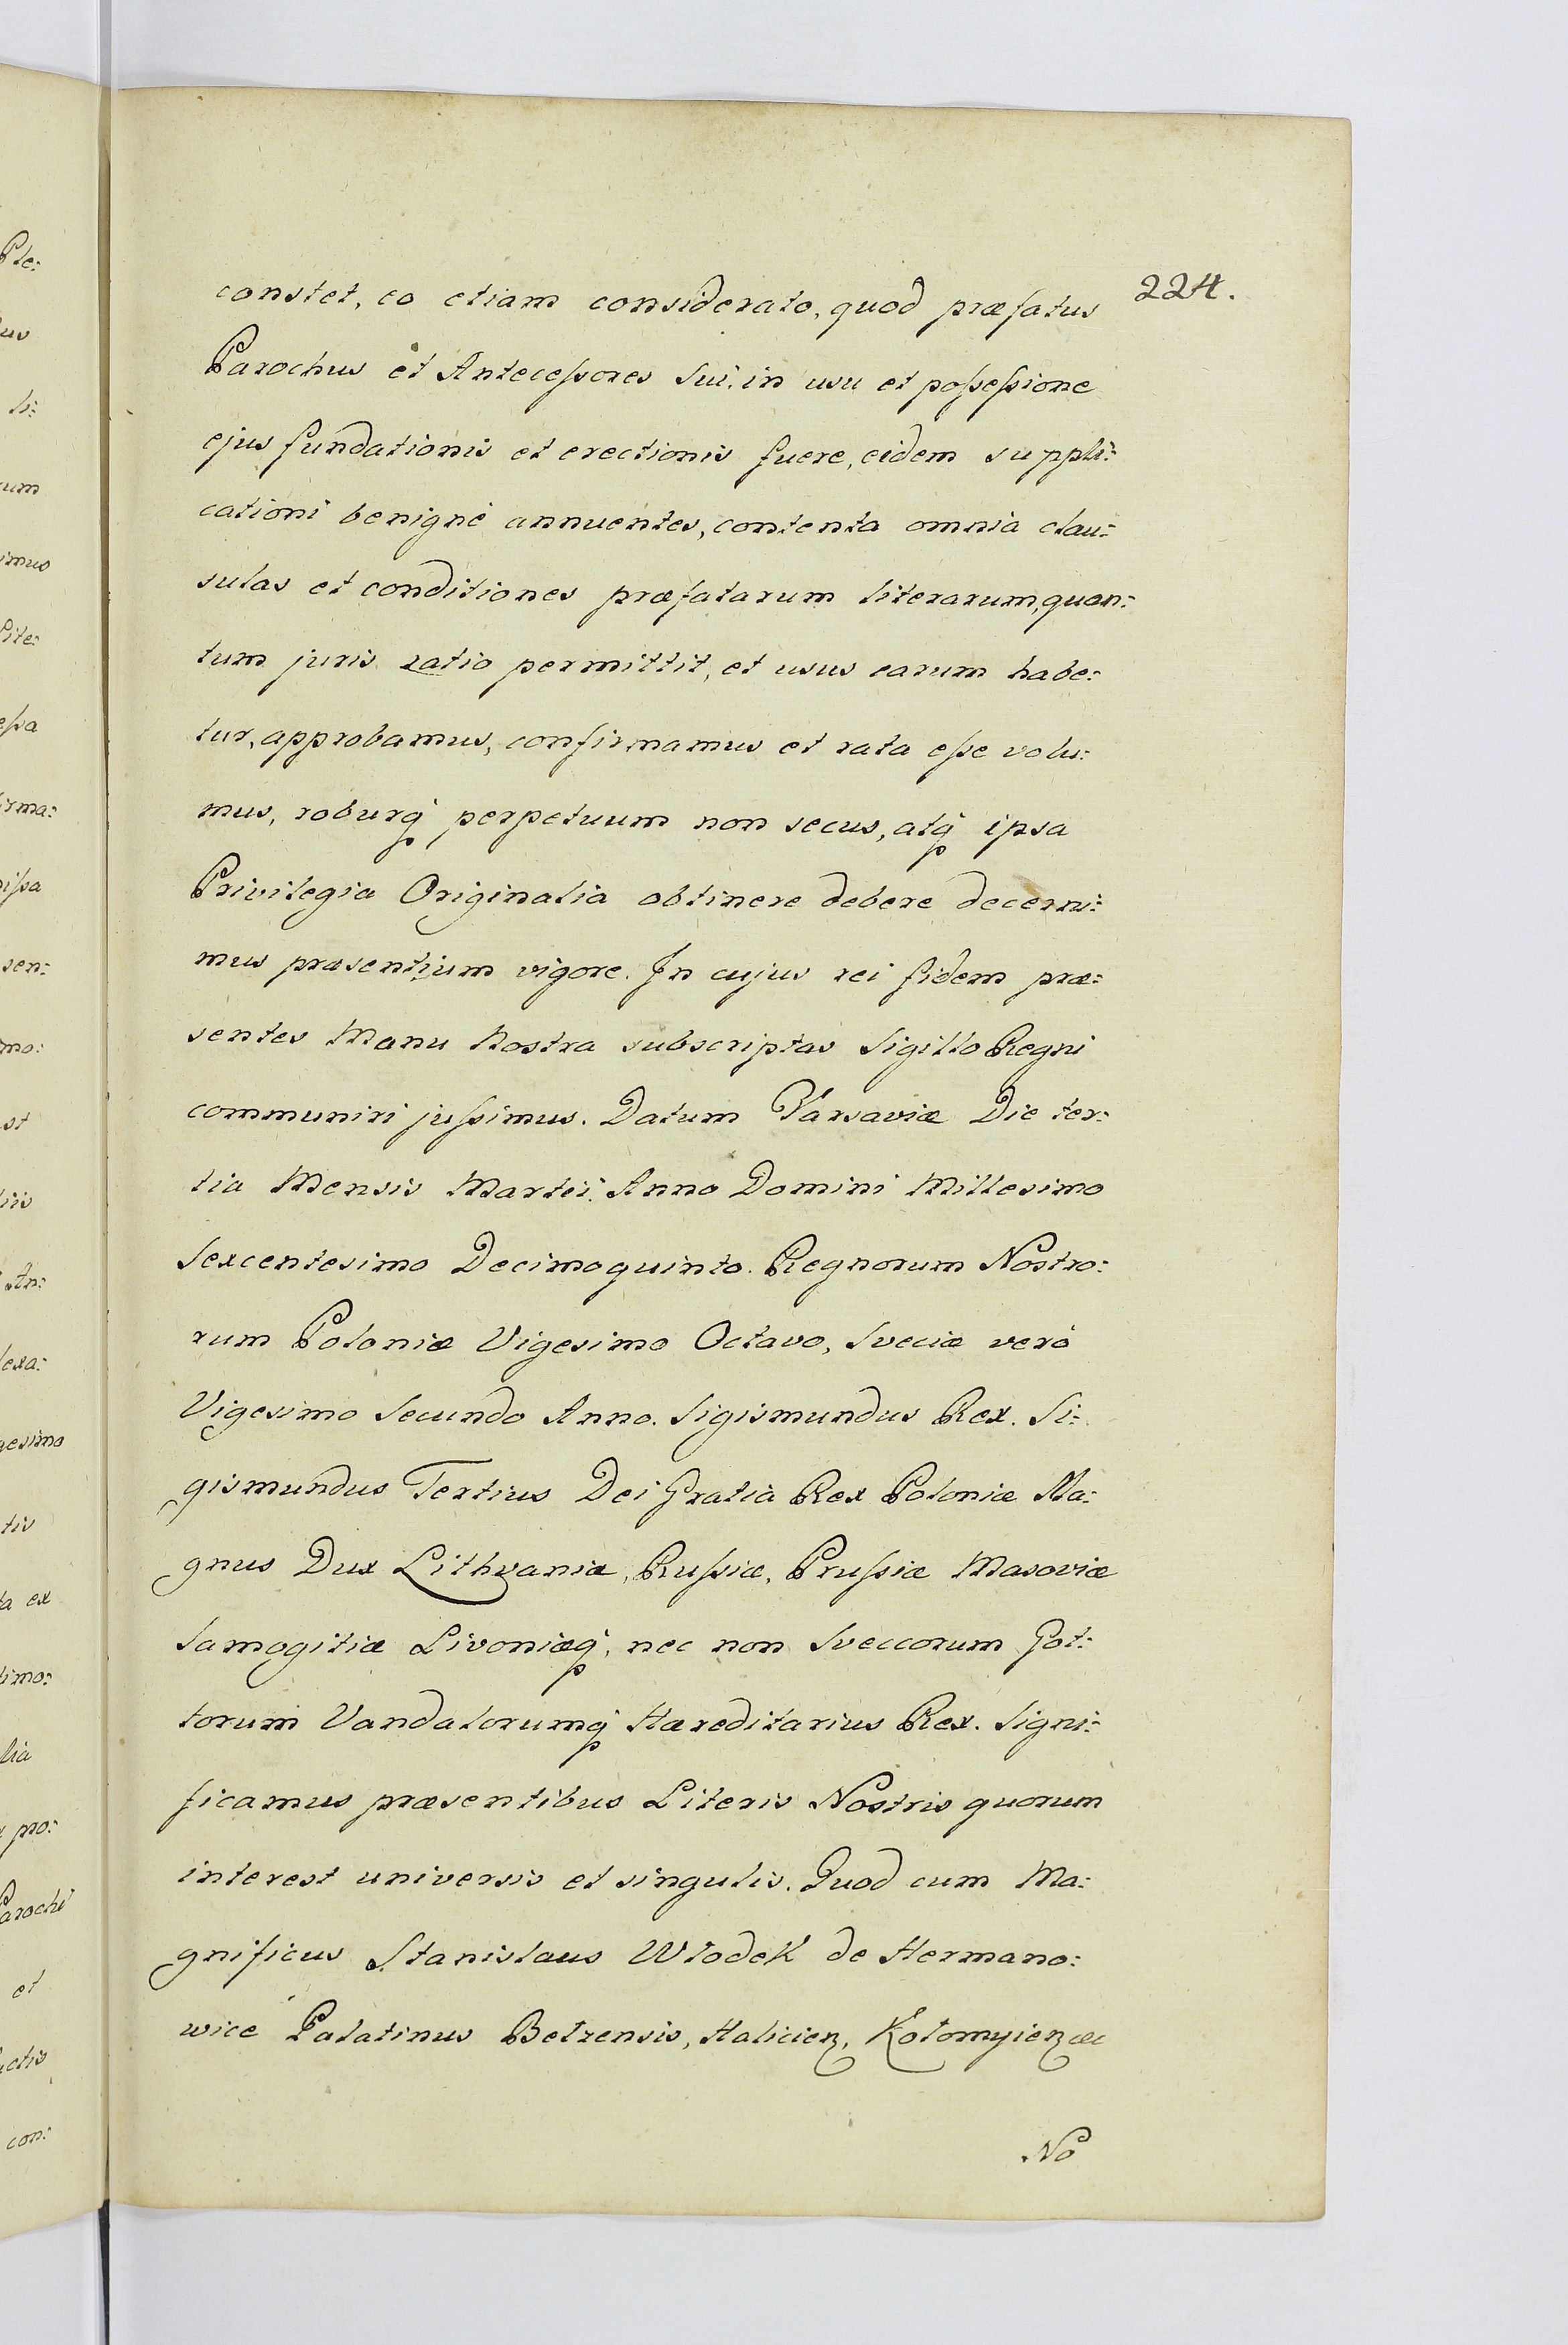 224.
constet, eo etiam considerato, quod præfatus
Parochus et Antecessores Sui, in usu et possessione
ejus fundationis et erectionis fuere, eidem suppli:
cationi benignè annuentes, contenta omnia clau:
sulas et conditiones præfatarum literarum, quan:
tum juris ratio permittit, et usus earum habe:
tur, approbamus, confirmamus et rata esse volu:
mus, roburq perpetuum non secus, atq ipsa
Privilegia Originalia obtinere debere decerni:
mus præsentium vigore. In cujus rei fidem præ:
sentes Manu Nostra subscriptas Sigillo Regni
communiri jussimus. Datum Varsaviæ Die ter:
tia Mensis Martii. Anno Domini Millesimo
Sexcentesimo Decimoquinto. Regnorum Nostro:
rum Poloniæ Vigesimo Octavo, Sveciæ verò
Vigesimo Secundo Anno. Sigismundus Rex. Si:
gismundus Tertius Dei Gratia Rex Poloniæ Ma:
gnus Dux Lithvaniæ, Russiæ, Prussiæ Masoviæ
Samogitiæ Livoniæq, nec non Sveccorum Got:
torum Vandalorumq Hæreditarius Rex. Signi:
ficamus præsentibus Literis Nostris quorum
interest universis et singulis. Quod cum Ma:
gnificus Stanislaus Włodek de Hermano:
wice Palatinus Belzensis, Halicien, Kołomyien &c
No
Ple:
li:
esimo
ta ex
pro:
Parochi
et
con: